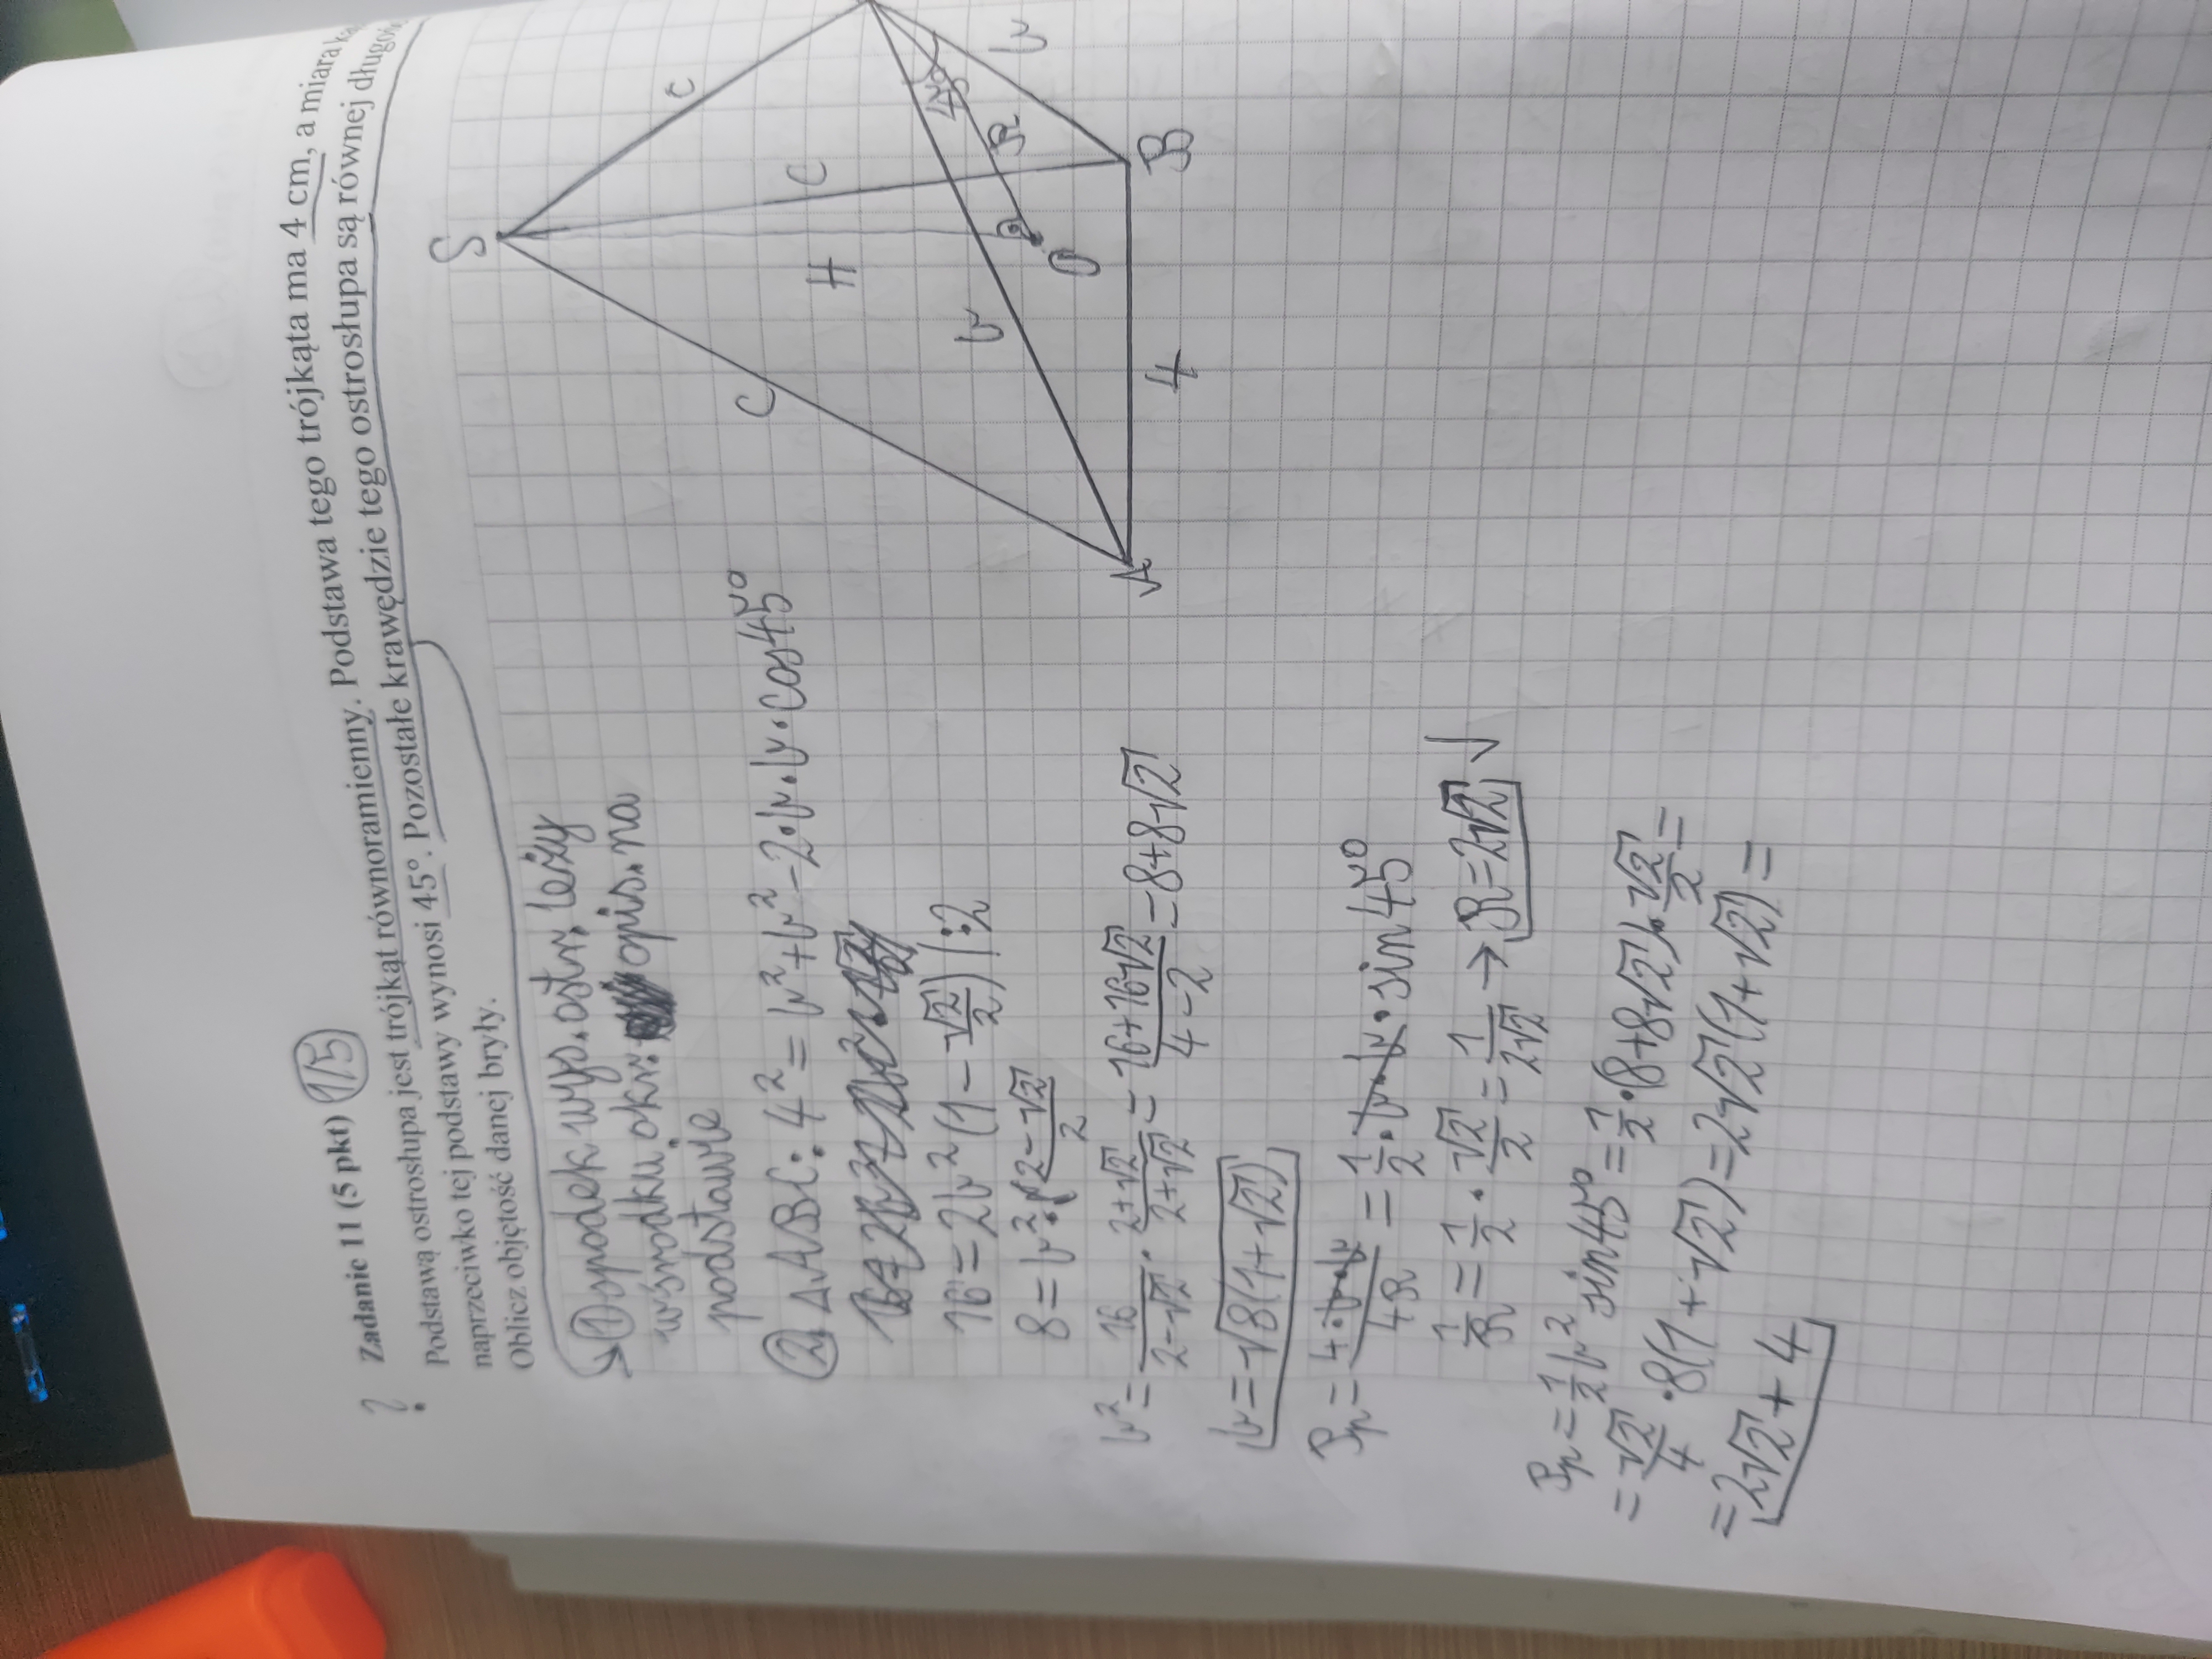 ? Zadanie 11 (5 pkt) 1/5
Podstawą ostrosłupa jest trójkąt równoramienny. Podstawa tego trójkąta ma 4 cm, a miara
naprzeciwko tej podstawy wynosi 45°. Pozostałe krawędzie tego ostrosłupa są równej
Oblicz objętość danej bryły.
1 spodek wys. ostr. leży
w środku okr. opis. na
podstawie
2. ΔABC: 4² = b² + b² - 2·b·b·cos45°
16 = 2b²(1 - √2/2) |:2
8 = b²·(2-√2)/2
b² = 16/(2-√2) · (2+√2)/(2+√2) = (16+16√2)/(4-2) = 8+8√2
b = √8(1+√2)
Pp = 4·b·b/4R = 1/2·b·b·sin45°
1/R = 1/2 · √2/2 = 1/2√2 → R = 2√2 √
Pp = 1/2 b² sin45° = 1/2·(8+8√2)·√2/2 =
= √2/4 ·8(1+√2) = 2√2(1+√2) =
= 2√2 + 4
S
C
C
C
H
b
b
45°
R
O
A
4
B